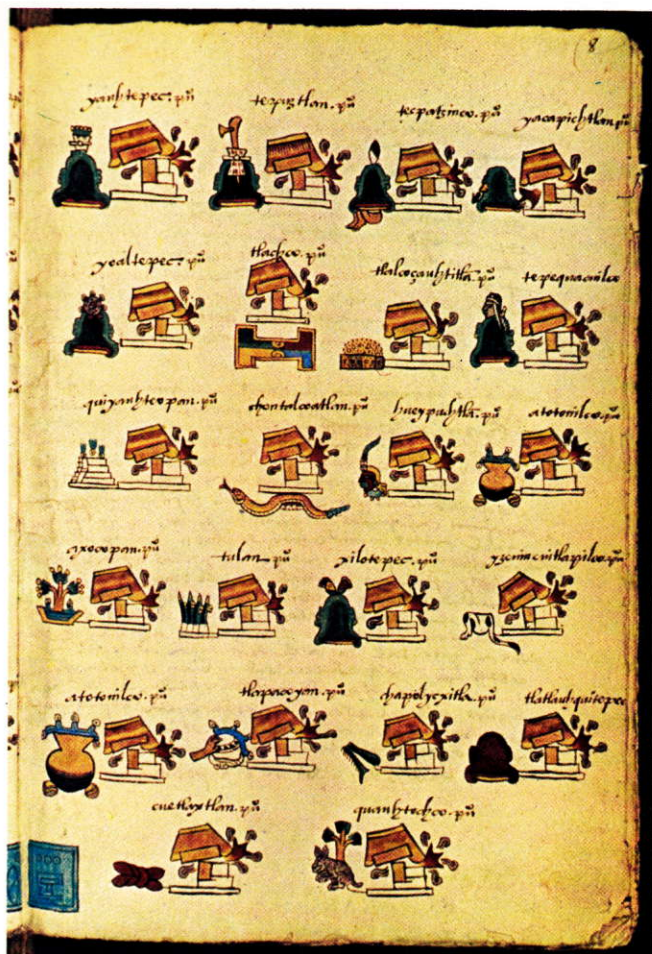 8
yauhtepec. pũ
tepuztlan. pũ
tecpatzinco. pũ
yacapichtlan. pũ
yoaltepec. pũ
tlachco. pũ
tlalcoçauhtitlã. pũ
tepequacuilco
quiyauhteopan. pũ
chontalcoatlan. pũ
hueypuchtlã. pũ
atotonilco. pũ
axocopan. pũ
tulan. pũ
xilotepec. pũ
yzcuincuitlapilco. pũ
atotonilco. pũ
tlapacoyan. pũ
chapolycxitla. pũ
tlatlauhquitepec
cuetlaxtlan. pũ
quauhtochco. pũ